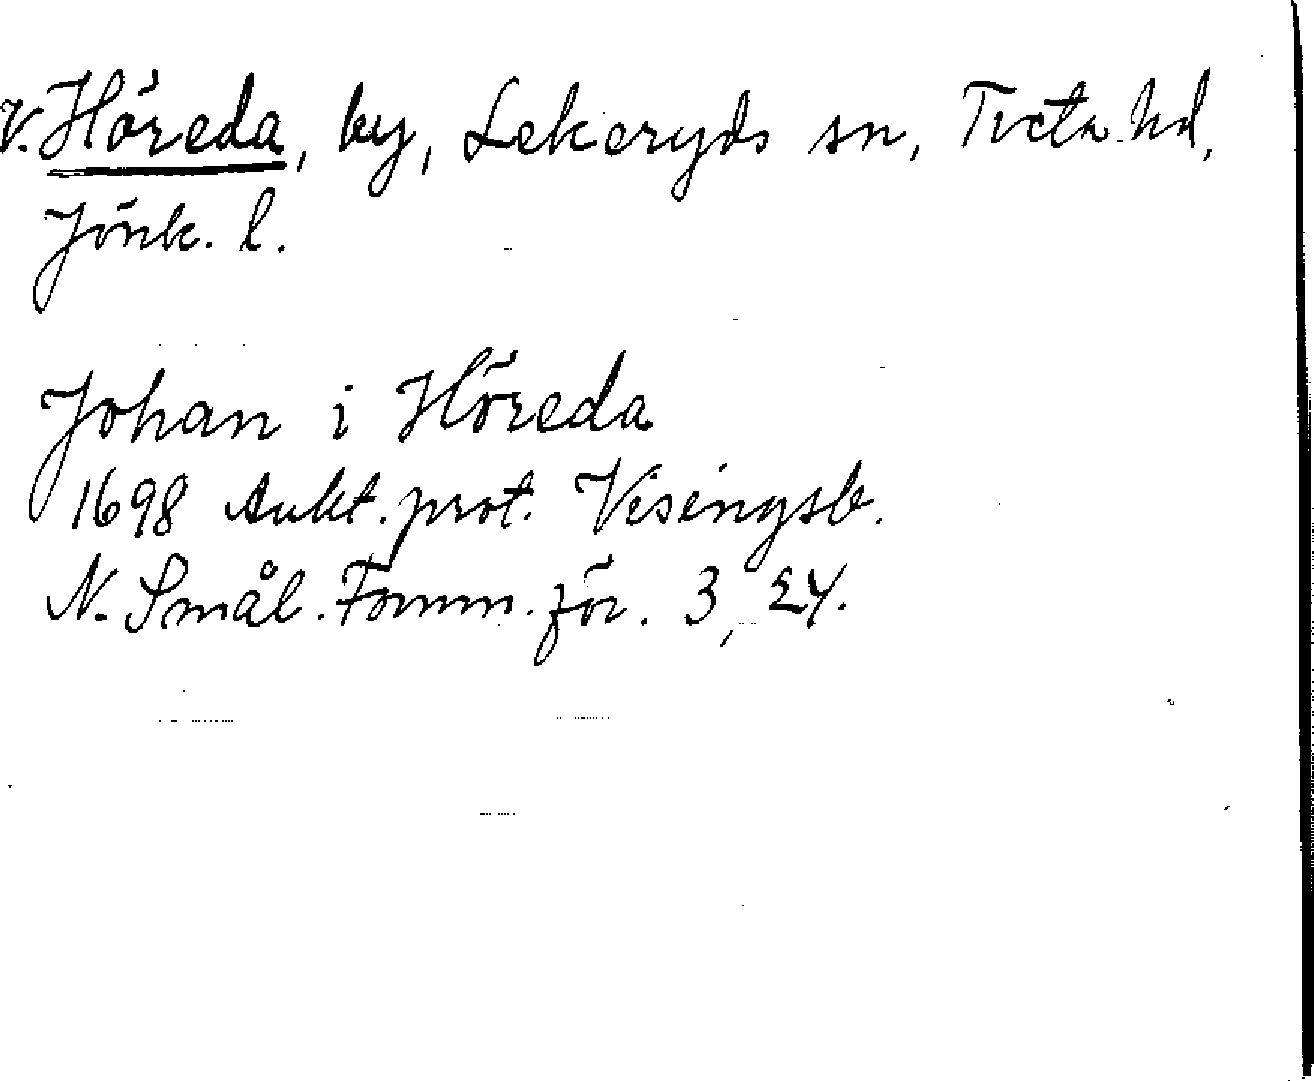 V. Höreda, by, Lekeryds sn, Tveta hd,
Jönk. l.
Johan i Höreda
1698 Aukt. prot. Visingsb.
N. Smål. Fornm. för. 3, 24.